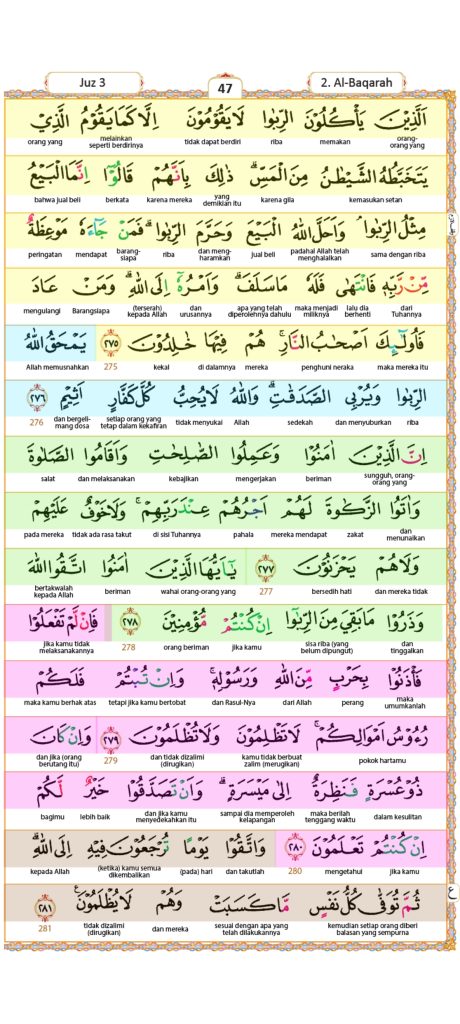 Juz 3
47
2. Al-Baqarah
اَلَّذِيْنَ يَأْكُلُوْنَ الرِّبٰوا لَا يَقُوْمُوْنَ اِلَّا كَمَا يَقُوْمُ الَّذِيْ
orang-orang yang memakan riba tidak dapat berdiri melainkan seperti berdirinya orang yang
يَتَخَبَّطُهُ الشَّيْطٰنُ مِنَ الْمَسِّۗ ذٰلِكَ بِاَنَّهُمْ قَالُوْٓا اِنَّمَا الْبَيْعُ
kemasukan setan karena gila yang demikian itu karena mereka berkata bahwa jual beli
مِثْلُ الرِّبٰواۘ وَاَحَلَّ اللّٰهُ الْبَيْعَ وَحَرَّمَ الرِّبٰواۗ فَمَنْ جَاۤءَهٗ مَوْعِظَةٌ
sama dengan riba padahal Allah telah menghalalkan jual beli dan mengharamkan riba barangsiapa mendapat peringatan
مِّنْ رَّبِّهٖ فَانْتَهٰى فَلَهٗ مَا سَلَفَۗ وَاَمْرُهٗٓ اِلَى اللّٰهِۗ وَمَنْ عَادَ
dari Tuhannya lalu dia berhenti maka menjadi miliknya apa yang telah diperolehnya dahulu dan urusannya (terserah) kepada Allah Barangsiapa mengulangi
فَاُولٰۤىِٕكَ اَصْحٰبُ النَّارِۚ هُمْ فِيْهَا خٰلِدُوْنَ ٢٧٥ يَمْحَقُ اللّٰهُ
maka mereka itu penghuni neraka mereka di dalamnya kekal 275 Allah memusnahkan
الرِّبٰوا وَيُرْبِى الصَّدَقٰتِۗ وَاللّٰهُ لَا يُحِبُّ كُلَّ كَفَّارٍ اَثِيْمٍ ٢٧٦
riba dan menyuburkan sedekah Allah tidak menyukai setiap orang yang tetap dalam kekafiran dan bergelimang dosa 276
اِنَّ الَّذِيْنَ اٰمَنُوْا وَعَمِلُوا الصّٰلِحٰتِ وَاَقَامُوا الصَّلٰوةَ
sungguh, orang-orang yang beriman mengerjakan kebajikan dan melaksanakan salat
وَاٰتَوُا الزَّكٰوةَ لَهُمْ اَجْرُهُمْ عِنْدَ رَبِّهِمْۚ وَلَا خَوْفٌ عَلَيْهِمْ
dan menunaikan zakat mereka mendapat pahala di sisi Tuhannya tidak ada rasa takut pada mereka
وَلَا هُمْ يَحْزَنُوْنَ ٢٧٧ يٰٓاَيُّهَا الَّذِيْنَ اٰمَنُوا اتَّقُوا اللّٰهَ
dan mereka tidak bersedih hati 277 wahai orang-orang yang beriman bertakwalah kepada Allah
وَذَرُوْا مَا بَقِيَ مِنَ الرِّبٰوٓا اِنْ كُنْتُمْ مُّؤْمِنِيْنَ ٢٧٨ فَاِنْ لَّمْ تَفْعَلُوْا
dan tinggalkan sisa riba (yang belum dipungut) jika kamu orang beriman 278 jika kamu tidak melaksanakannya
فَأْذَنُوْا بِحَرْبٍ مِّنَ اللّٰهِ وَرَسُوْلِهٖۚ وَاِنْ تُبْتُمْ فَلَكُمْ
maka umumkanlah perang dari Allah dan Rasul-Nya tetapi jika kamu bertobat maka kamu berhak atas
رُءُوْسُ اَمْوَالِكُمْۚ لَا تَظْلِمُوْنَ وَلَا تُظْلَمُوْنَ ٢٧٩ وَاِنْ كَانَ
pokok hartamu kamu tidak berbuat zalim (merugikan) dan tidak dizalimi (dirugikan) 279 dan jika (orang berutang itu)
ذُوْ عُسْرَةٍ فَنَظِرَةٌ اِلٰى مَيْسَرَةٍۗ وَاَنْ تَصَدَّقُوْا خَيْرٌ لَّكُمْ
dalam kesulitan maka berilah tenggang waktu sampai dia memperoleh kelapangan dan jika kamu menyedekahkan itu lebih baik bagimu
اِنْ كُنْتُمْ تَعْلَمُوْنَ ٢٨٠ وَاتَّقُوْا يَوْمًا تُرْجَعُوْنَ فِيْهِ اِلَى اللّٰهِۗ
jika kamu mengetahui 280 dan takutlah (pada) hari (ketika) kamu semua dikembalikan kepada Allah
ثُمَّ تُوَفّٰى كُلُّ نَفْسٍ مَّا كَسَبَتْ وَهُمْ لَا يُظْلَمُوْنَ ٢٨١
kemudian setiap orang diberi balasan yang sempurna sesuai dengan apa yang telah dilakukannya dan mereka tidak dizalimi (dirugikan) 281
ع